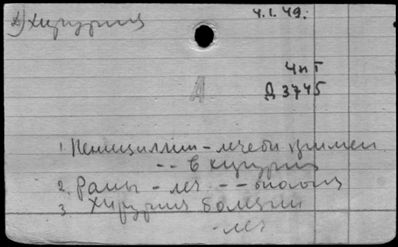 2) Хирургия 4.I.49.
ЧпГ
Д 3745
1. Пенициллин - лечебн примен
-- в хирургии
2. Раны - леч --
3. Хирургия болезни
- леч